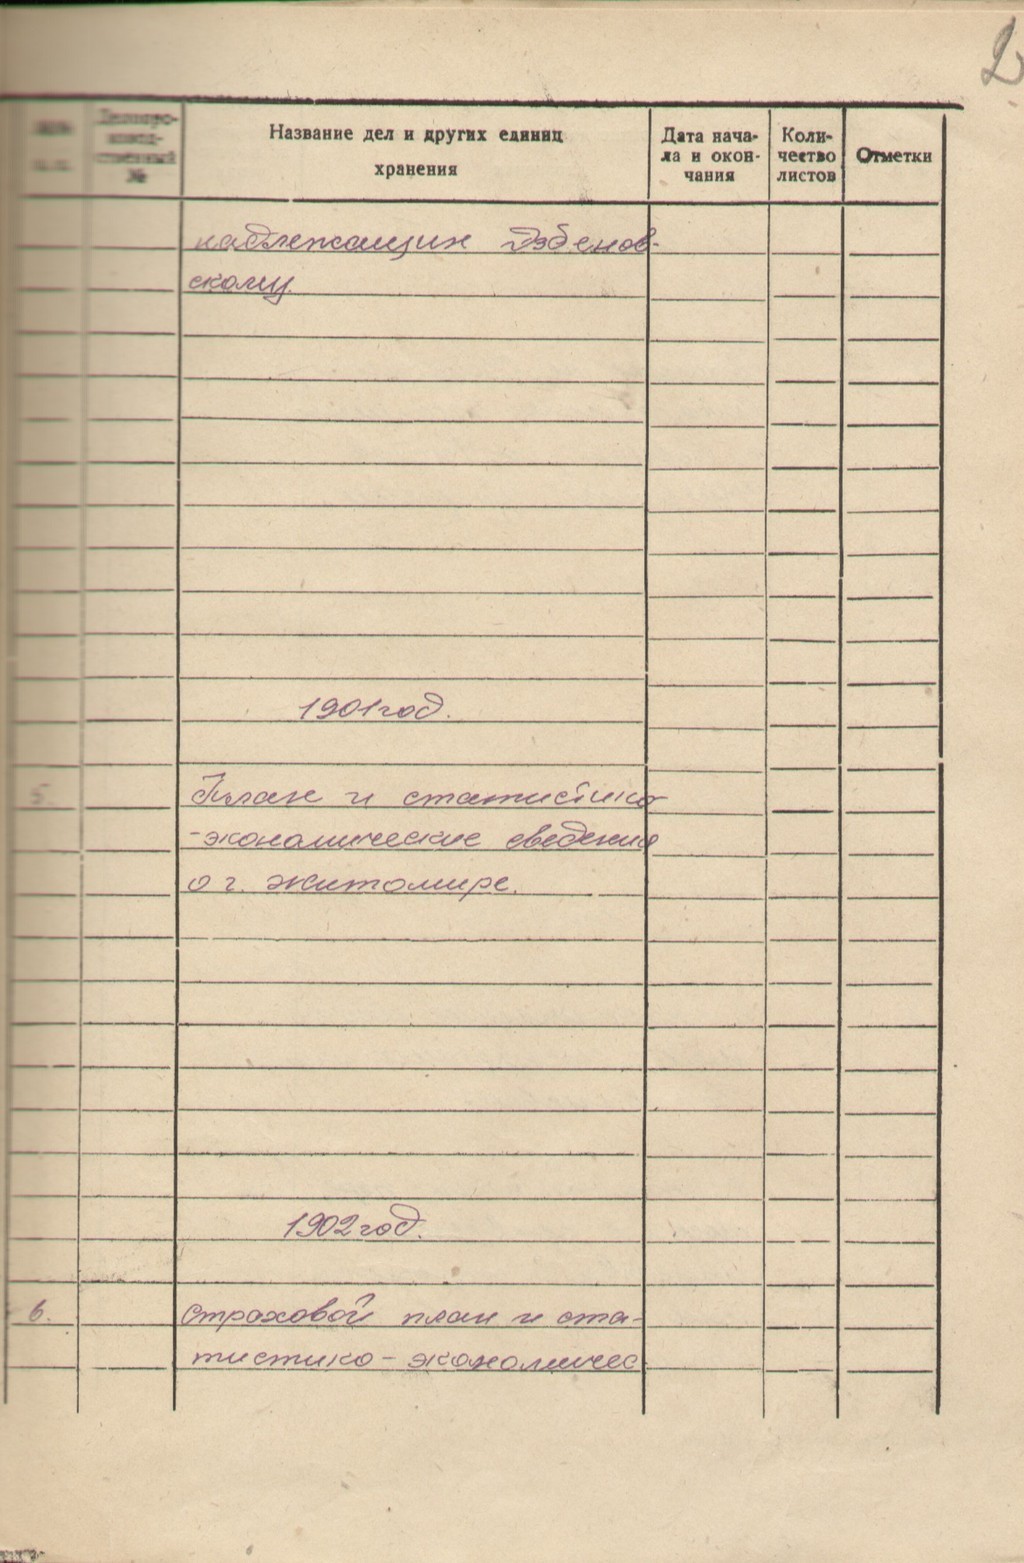 2
Делопро-
извод-
ственный
№
Название дел и других единиц
хранения
Дата нача-
ла и окон-
чания
Коли-
чество
листов
Отметки
надлежащих
скому.
1901 год.
5. План и статистико
-экономические сведения
о г. Житомире.
1902 год.
6. Страховой план и ста-
тистико-экономичес